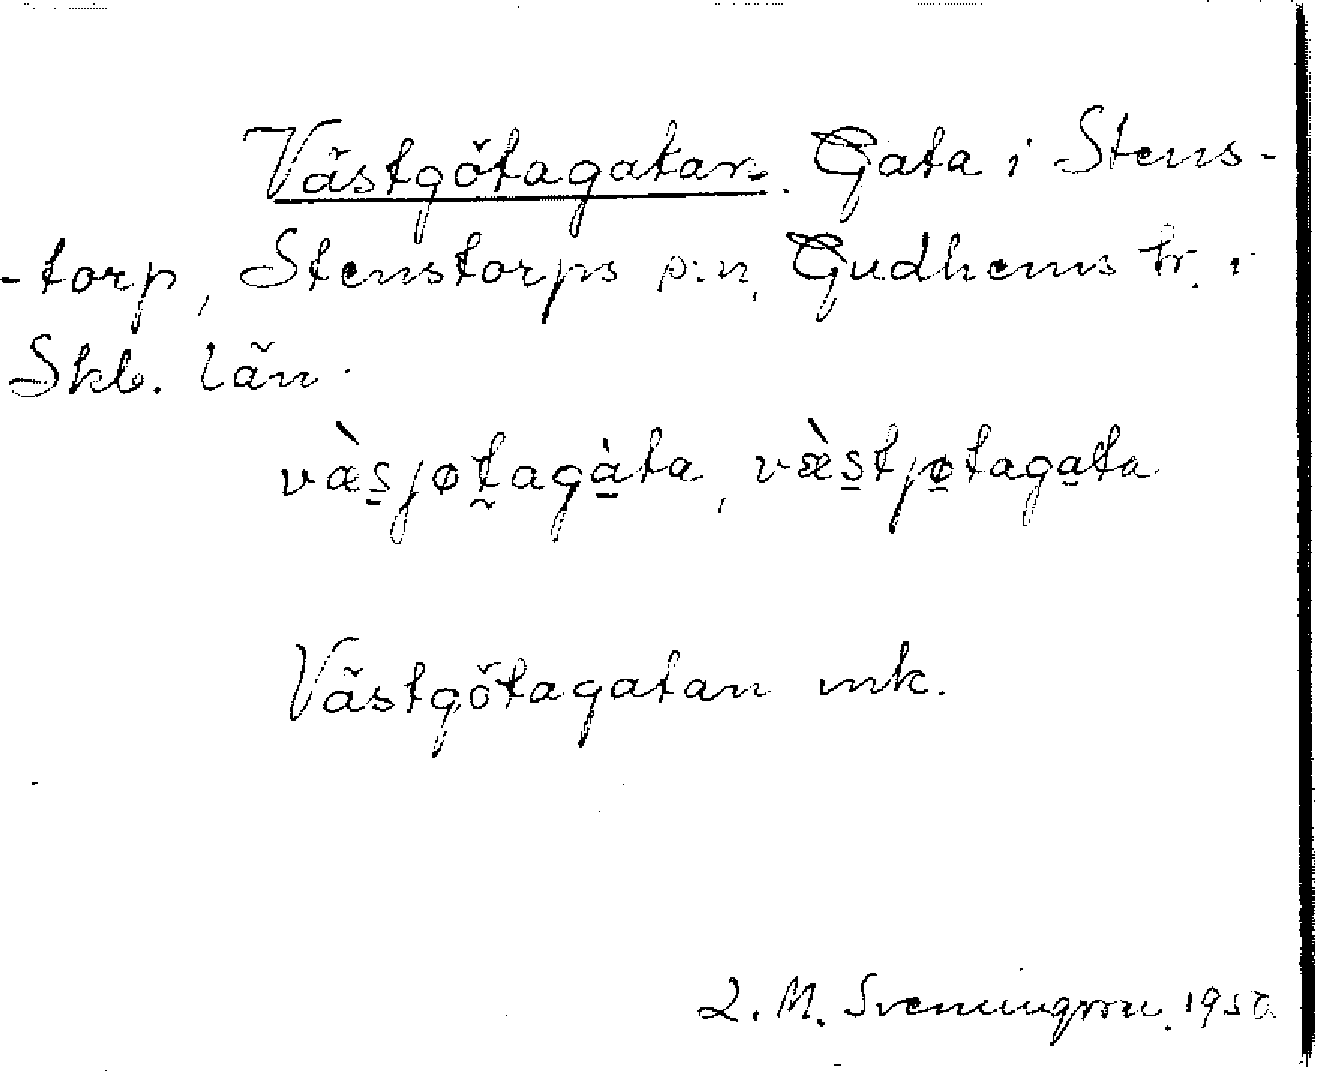 Västgötagatan. Gata i Stens-
-torp, Stenstorps s:n, Gudhems hr. i
Skb. län.
væ̀s̱jøt̰agà̱ta, væ̀s̱tjø̱taga̱ta
Västgötagatan mk.
L. M. Svenningson. 1950